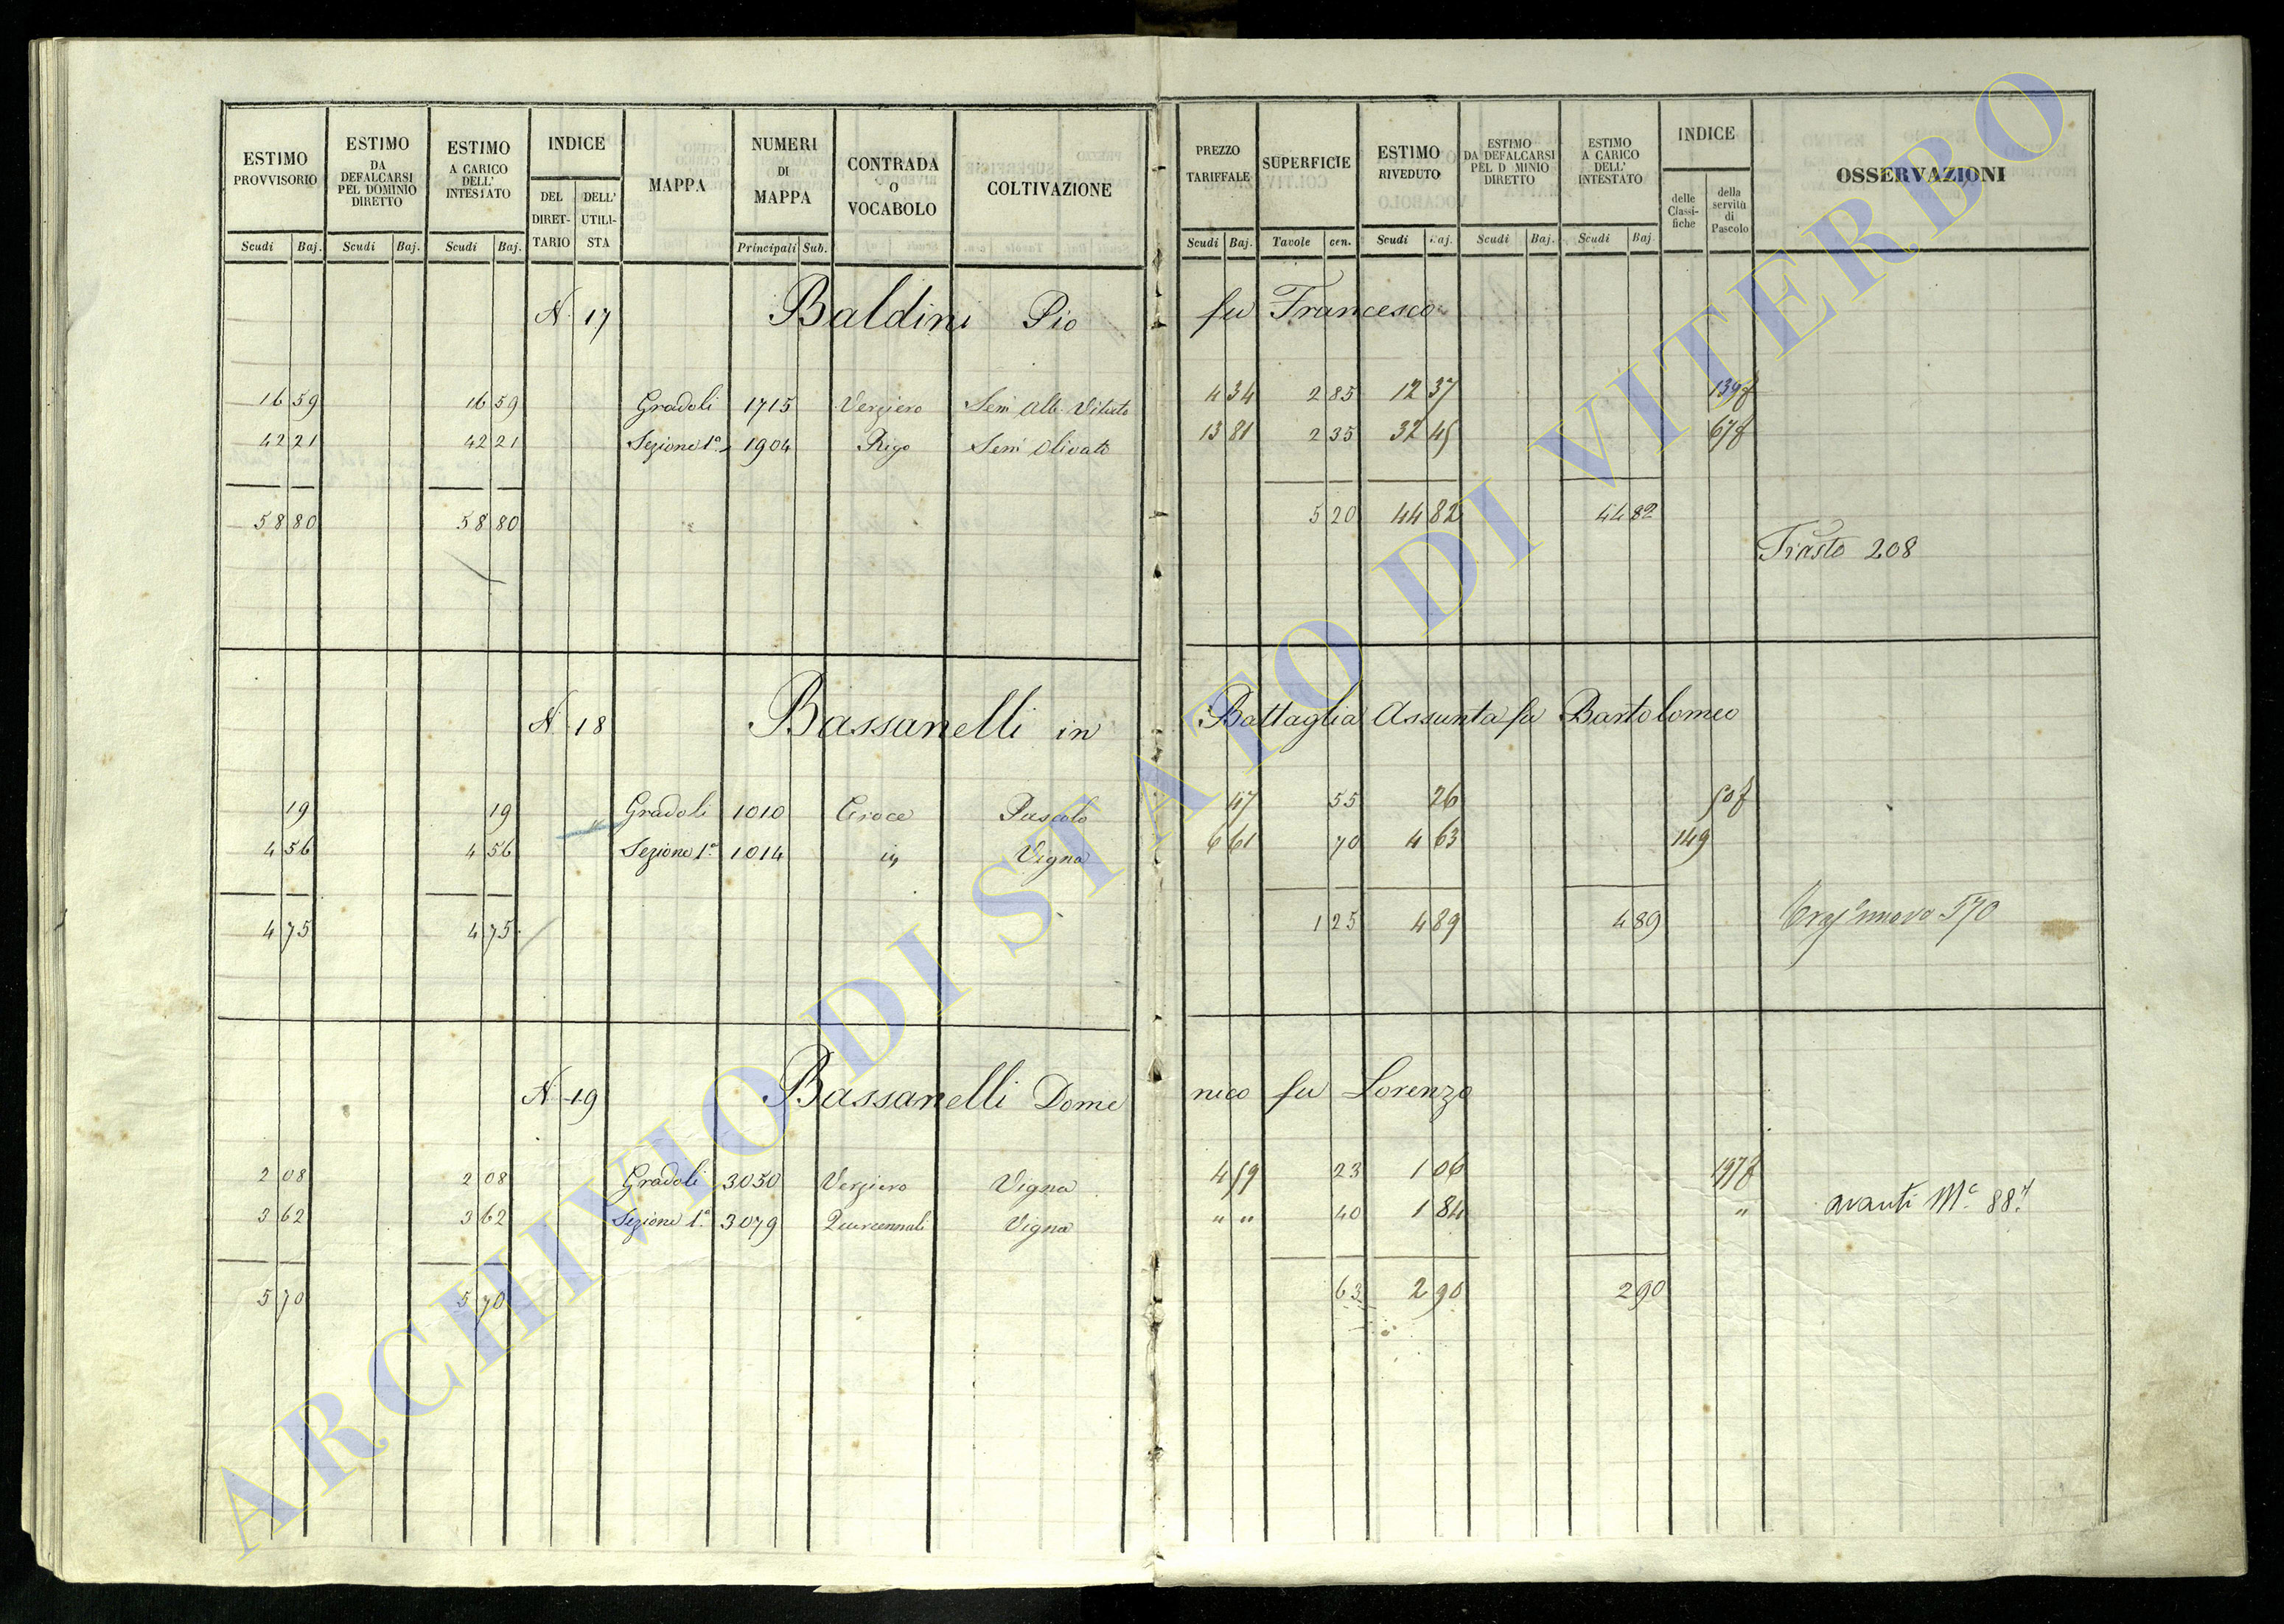 ESTIMO PROVVISORIO | ESTIMO DA DEFALCARSI PEL DOMINIO DIRETTO | ESTIMO A CARICO DELL' INTESTATO | INDICE | MAPPA | NUMERI DI MAPPA | CONTRADA O VOCABOLO | COLTIVAZIONE | PREZZO TARIFFALE | SUPERFICIE | ESTIMO RIVEDUTO | ESTIMO DA DEFALCARSI PEL D MINIO DIRETTO | ESTIMO A CARICO DELL' INTESTATO | INDICE | OSSERVAZIONI
DEL DIRET-TARIO | DELL' UTILI-STA | delle Classi-fiche | della servitù di Pascolo
Scudi | Baj. | Scudi | Baj. | Scudi | Baj. | Principali | Sub. | Scudi | Baj. | Tavole | cen. | Scudi | Baj. | Scudi | Baj. | Scudi | Baj.
N. 17 Baldini Pio fu Francesco
16 59 | 16 59 | Gradoli | 1715 | Verziero | Sem Alb. Vitato | 4 34 | 2 85 | 12 37 | 139 f
42 21 | 42 21 | Sezione 1ª | 1904 | Rigo | Sem Olivato | 13 81 | 2 35 | 32 45 | 67 f
58 80 | 58 80 | 5 20 | 44 82 | 44 82
Trasto 208
N. 18 Bassanelli in Battaglia Assunta fu Bartolomeo
19 | 19 | Gradoli | 1010 | Croce | Pascolo | 47 | 55 | 26 | 50 f
4 56 | 4 56 | Sezione 1ª | 1014 | | Vigna | 6 61 | 70 | 4 63 | 149
4 75 | 4 75 | 1 25 | 4 89 | 4 89 | 570
N. 19 Bassanelli Domenico fu Lorenzo
2 08 | 2 08 | Gradoli | 3050 | Verziero | Vigna | 4 59 | 23 | 1 06 | 197 f
3 62 | 3 62 | Sezione 1ª | 3079 | | Vigna | " " | 40 | 1 84 | " | avanti
5 70 | 5 70 | 63 | 2 90 | 2 90
ARCHIVIO DI STATO DI VITERBO